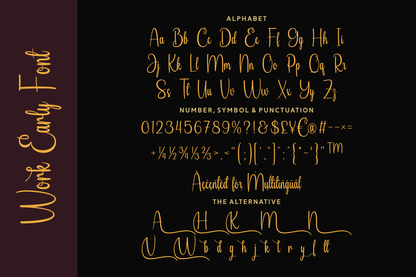 Work Early Font
ALPHABET
Aa Bb Cc Dd Ee Ff Gg Hh Ii
Jj Kk Ll Mm Nn Oo Pp Qq Rr
Ss Tt Uu Vv Ww Xx Yy Zz
NUMBER, SYMBOL & PUNCTUATION
0123456789%?!&$£¥€@#--~×=
Accented for Multilingual
THE ALTERNATIVE
A H K M N
U W b d g h j k t r y ll tt